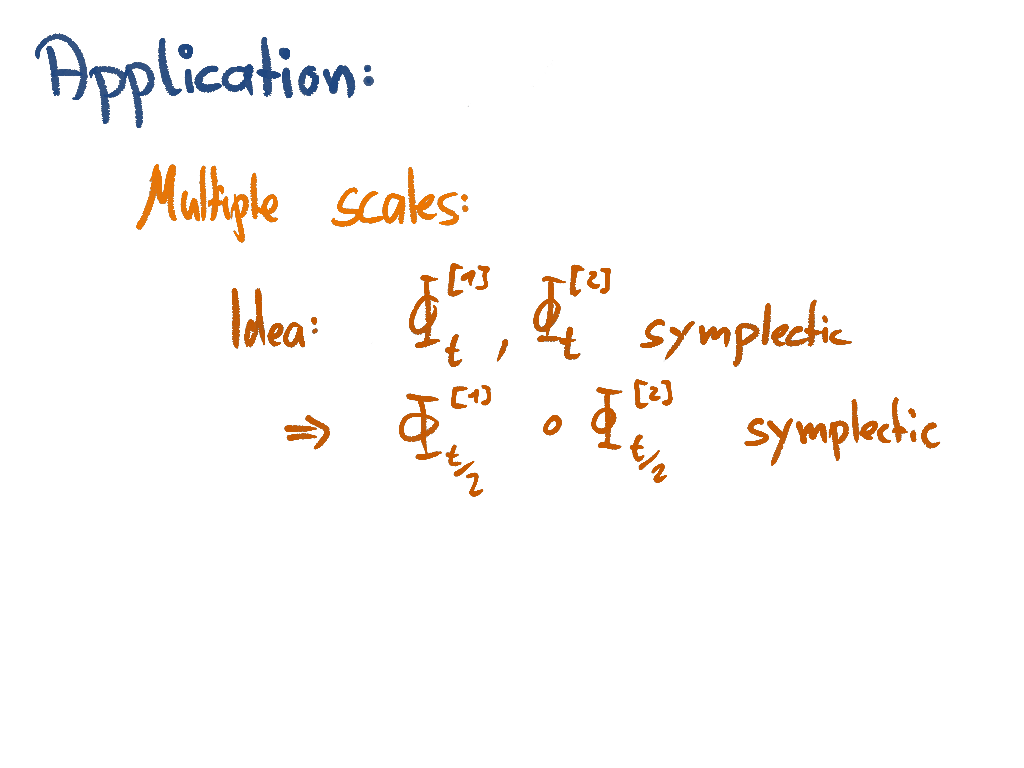 Application:
Multiple scales:
Idea: Φ_t^[1], Φ_t^[2] symplectic
⇒ Φ_{t/2}^[1] ∘ Φ_{t/2}^[2] symplectic